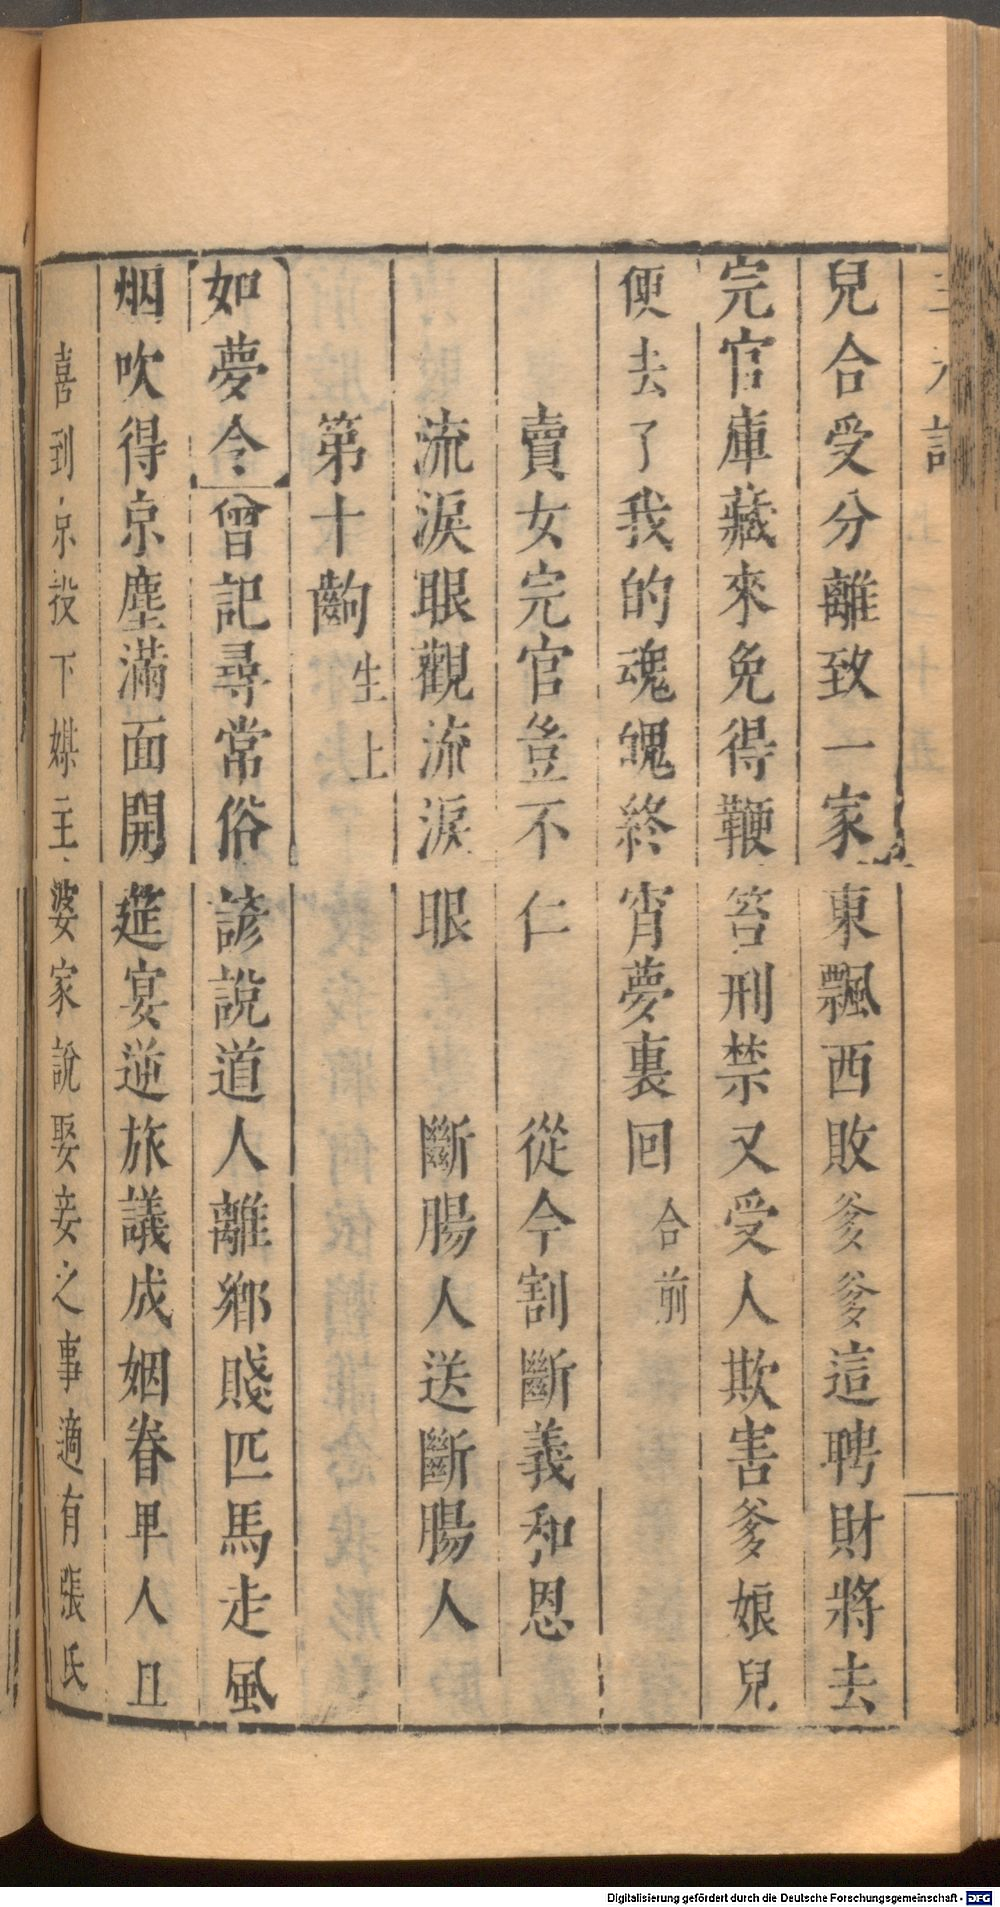 三元記
兒合受分離致一家東飄西敗爹爹這聘財將去
完官庫藏來免得鞭笞刑禁又受人欺害爹娘兒
便去了我的魂魄終宵夢裏回合前
賣女完官豈不仁 從今割斷義和恩
流淚眼觀流淚眼 斷腸人送斷腸人
第十齣生上
如夢令曾記尋常俗諺說道人離鄉賤匹馬走風
烟吹得京塵滿面開筵宴逆旅議成姻眷卑人且
喜到京投下媒主婆家說娶妾之事適有張氏
Digitalisierung gefördert durch die Deutsche Forschungsgemeinschaft - DFG